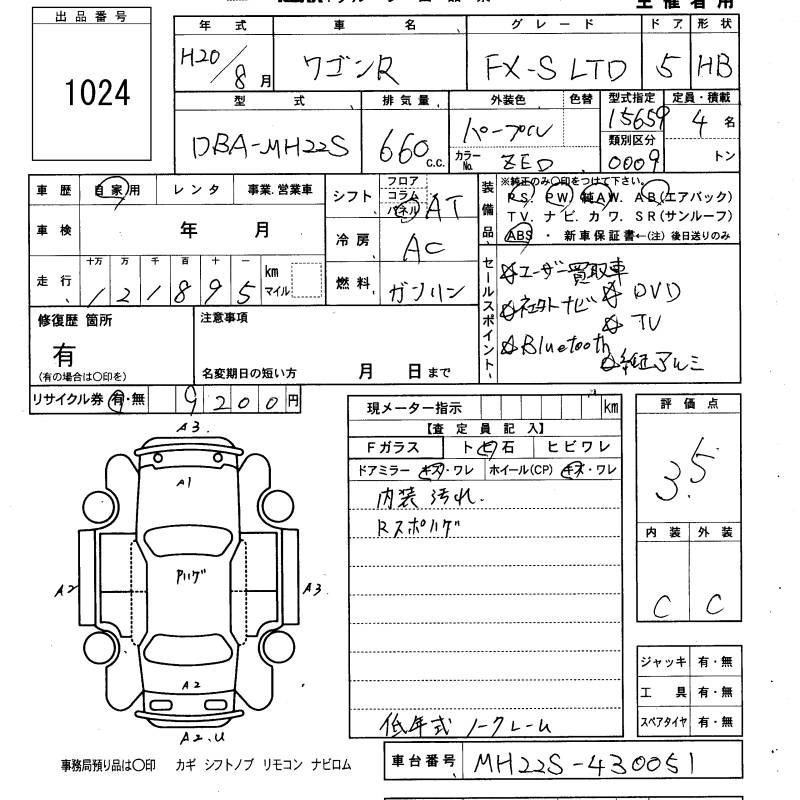 主催者用
出品番号
1024
年式 車名 グレード ドア 形状
H20/8月 ワゴンR FX-S LTD 5 HB
型式 排気量 外装色 色替 型式指定 定員・積載
DBA-MH22S 660 C.C. パープル 15659 4名
カラーNo. ZED 類別区分 0009 トン
車歴 自家用 レンタ 事業.営業車
シフト フロア コラム パネル AT
車検 年 月
冷房 AC
走行 十万 万 千 百 十 一 km マイル
121895
燃料 ガソリン
装備品
※純正のみ○印をつけて下さい。
PS. PW. 純AW. AB(エアバック)
TV. ナビ. カワ. SR(サンルーフ)
ABS ・ 新車保証書←(注)後日送りのみ
セールスポイント
☆ユーザー買取車
☆社外ナビ ☆DVD
☆TV
☆Bluetooth
☆純正アルミ
修復歴 箇所
有
(有の場合は○印を)
注意事項
名変期日の短い方 月 日まで
リサイクル券 有・無 9200円
現メーター指示 km
【査定員記入】
Fガラス トビ石 ヒビワレ
ドアミラー キズ・ワレ ホイール(CP) キズ・ワレ
内装汚れ.
Rスポハゲ
低年式ノークレーム
評価点
3.5
内装 外装
C C
A3.
A1
Pハゲ
A2 A3
A2
A2.U
ジャッキ 有・無
工具 有・無
スペアタイヤ 有・無
事務局預り品は○印 カギ シフトノブ リモコン ナビロム
車台番号 MH22S-430051